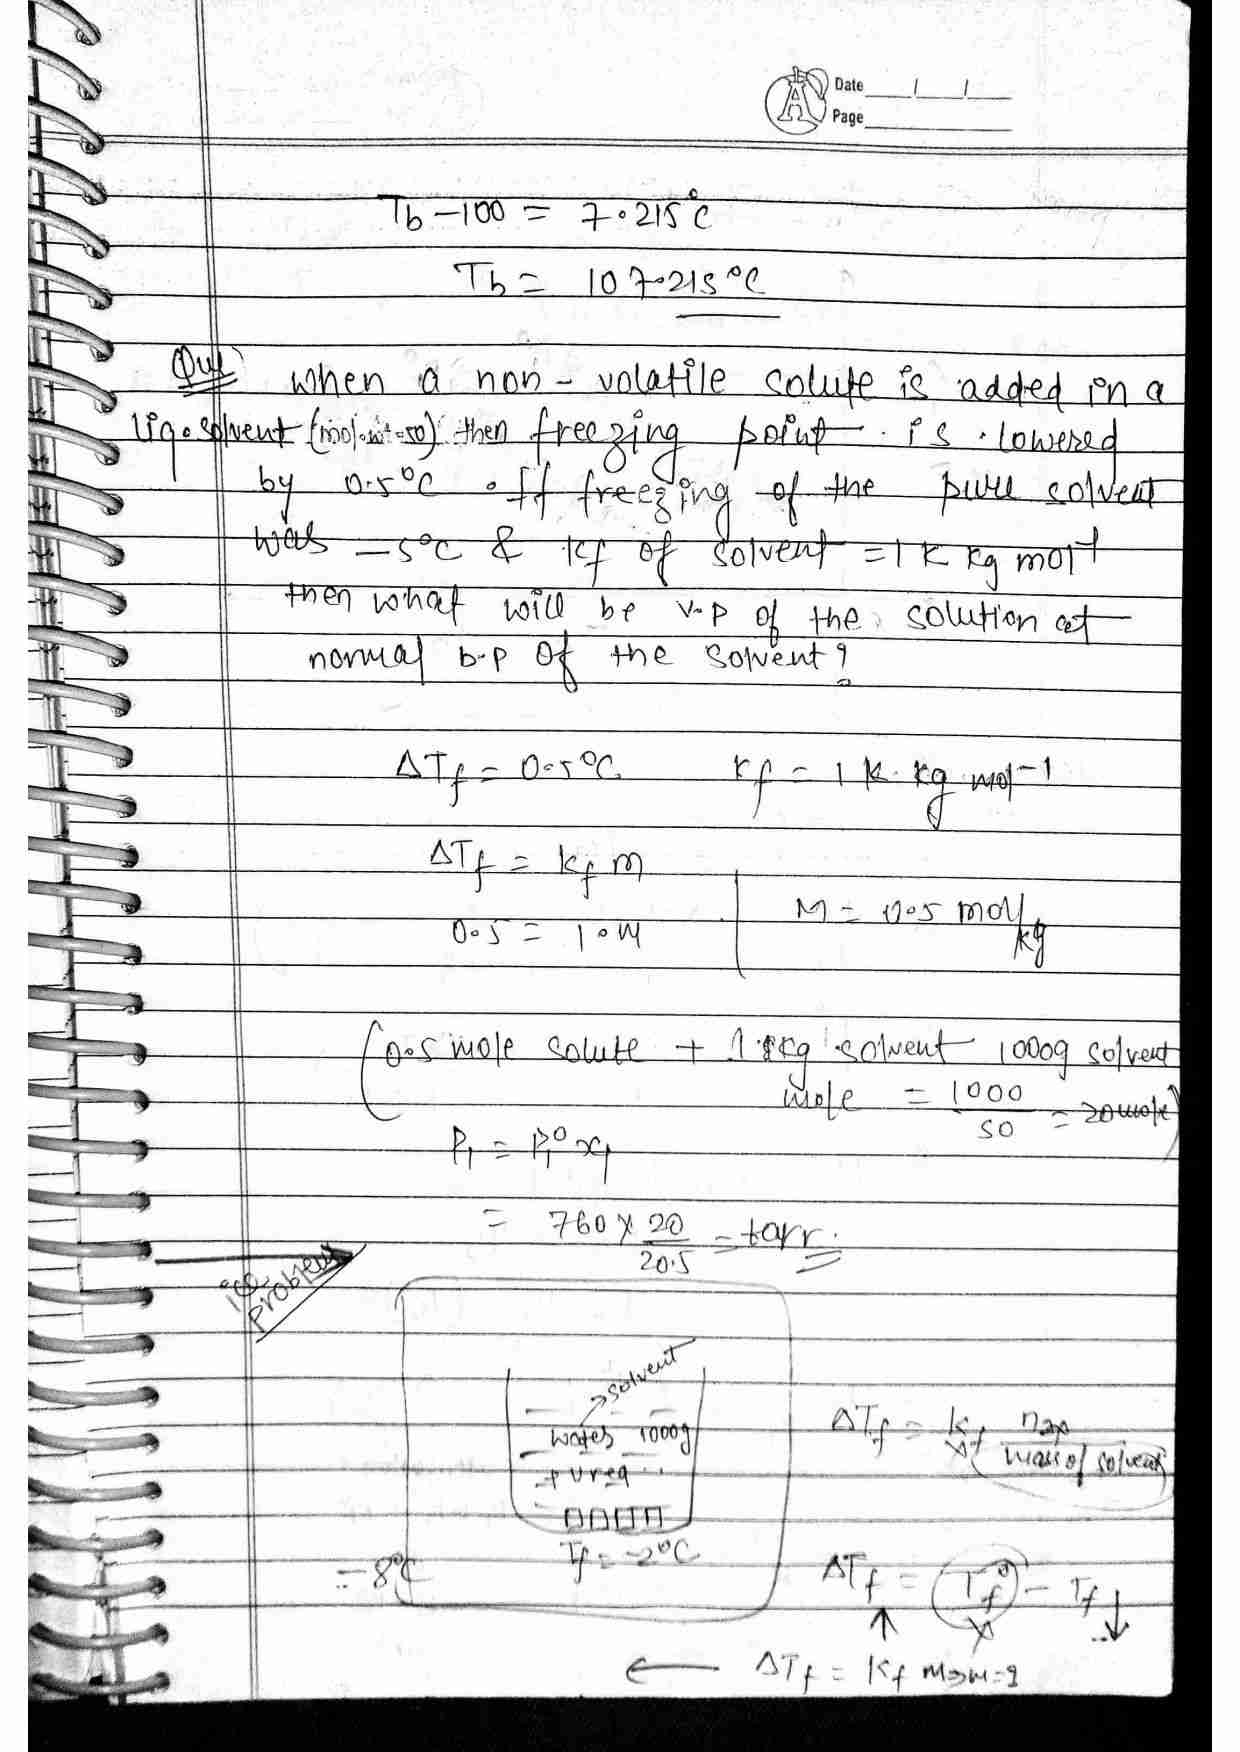 Date
Page
Tb - 100 = 7.215°C
Tb = 107.215°C
Que) when a non-volatile solute is added in a
liq. solvent (mol.wt=50) then freezing point is lowered
by 0.5°C. If freezing of the pure solvent
was -5°C & Kf of solvent = 1 K kg mol⁻¹
then what will be v.p of the solution at
normal b.p of the solvent?
ΔTf = 0.5°C Kf = 1 K. kg mol⁻¹
ΔTf = Kf m
0.5 = 1.m
M = 0.5 mol/kg
(0.5 mole solute + 1 kg solvent 1000g solvent
mole = 1000/50 = 20 mole)
P₁ = P₁° x₁
= 760 × 20/20.5 = tarr.
ice
problem
solvent
water 1000g
+ Urea
Tf = -2°C
= -8°C
ΔTf = Kf × n₂ / mass of solvent
ΔTf = Tf° - Tf
ΔTf = Kf m ⇒ m = ?